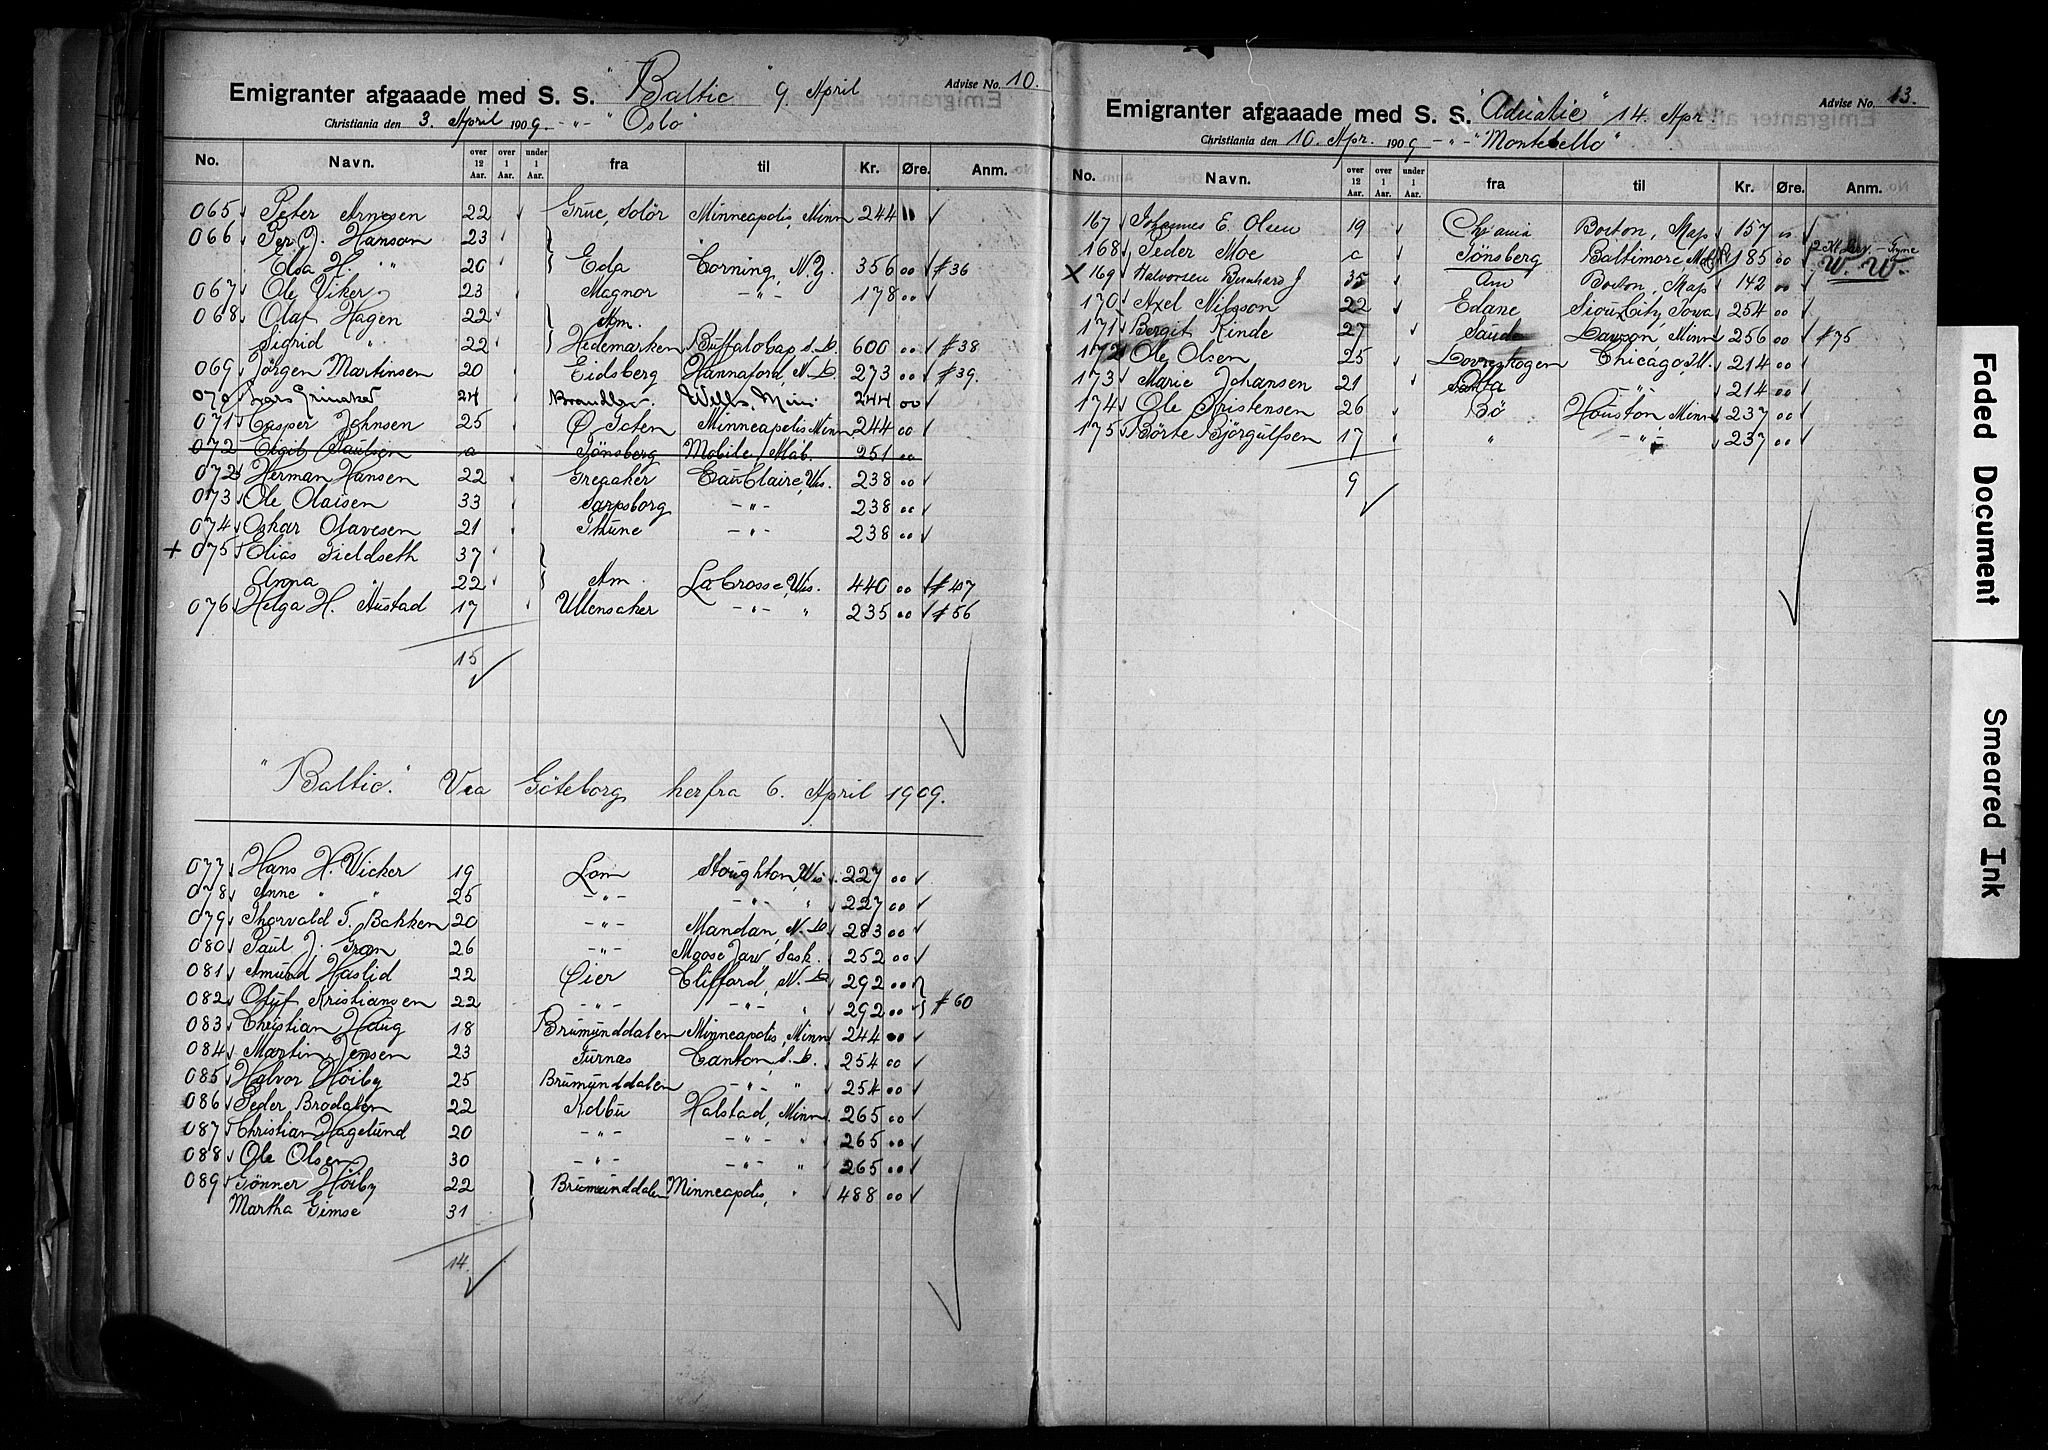 Emigranter afgaaade med S. S. "Baltic" 9. April Advise No. 10.
Christiania den 3. April 1909. -"- "Oslo"
No. Navn. over 12 Aar. over 1 Aar. under 1 Aar. fra til Kr. Øre. Anm.
065 Peter Arnesen 22 Grue, Solör Minneapolis, Minn 244
066 Per J. Hanson 23
Elsa H. " " 20 Eda Corning, N.Y. 356 00 #36
067 Ole Viker 23 Magnor -"- 178 00
068 Olaf Hagen 22 Am.
Sigrid " 22 Hedemarken Buffalo Gap, S.D. 600 00 #38
069 Jörgen Martinsen 20 Eidsberg Hannaford, N.D. 273 00 #39.
070 Lars 24 Wells, Minn 244 00
071 Casper Johnsen 25 Ø Toten Minneapolis Minn 244 00
072 Eigil Paulsen a Tönsberg Mobile, Alab. 251 00
072 Herman Hansen 22 Greaaker Eau Claire, Wis. 238 00
073 Ole Olaisen 33 Sarpsborg -"- 238 00
074 Oskar Olavesen 21 Thune -"- 238 00
+ 075 Elias Fieldseth 37
Anna 22 Am. La Crosse, Wis. 440 00 #47
076 Helga H. Austad 17 Ullensaker -"- " 235 00 #56
15
"Baltic." Via Göteborg herfra 6. April 1909.
077 Hans H. Wicker 19 Lom Stoughton, Wis 227 00
078 Anne " " 25 -"- -"- " 227 00
079 Thorvald T. Bakken 20 -"- Mandan, N.D. 283 00
080 Paul J. Gran 26 -"- Moose Jaw Sask. 252 00
081 Amund Haslid 22 Öier Clifford, N.D. 292 00
082 Oluf Kristiansen 22 -"- -"- " 292 00 #60
083 Christian Haug 18 Brumunddalen Minneapolis, Minn 244 00
084 Martin Jensen 23 Furnas Canton, S.D. 254 00
085 Halvor Höiby 25 Brumunddalen -"- " 254 00
086 Peder Brodalen 22 Kolbu Halstad, Minn. 265 00
087 Christian Hagelund 20 -"- -"- " 265 00
088 Ole Olsen 30 -"- -"- " 265 00
089 Tönner Höiby 22 Brumunddalen Minneapolis, " 488 00
Martha Gimse 31
14.
Emigranter afgaaade med S. S. "Adriatic" 14. Apr. Advise No. 13.
Christiania den 10. Apr. 1909 -"- "Montebello"
No. Navn. over 12 Aar. over 1 Aar. under 1 Aar. fra til Kr. Øre. Anm.
167 Johannes E. Olsen 19 Chrania Boston, Mass 157 00
168 Peder Moe a Tönsberg Baltimore Md 185 00 Tyne
X 169 Halvorsen Bernhard J 35 Am Boston, Mass 142 00 W. W.
170 Axel Nilsson 22 Edane Sioux City, Iowa 254 00
171 Bergit Kinde 27 Saude Lawson, Minn 256 00 #75
172 Ole Olsen 25 Chicago, Ill. 214 00
173 Marie Johansen 21 Otta -"- 214 00
174 Ole Kristensen 26 Bö Houston, Minn 237 00
175 Börte Björgulfsen 17 " -"- 237 00
9
Faded Document
Smeared Ink